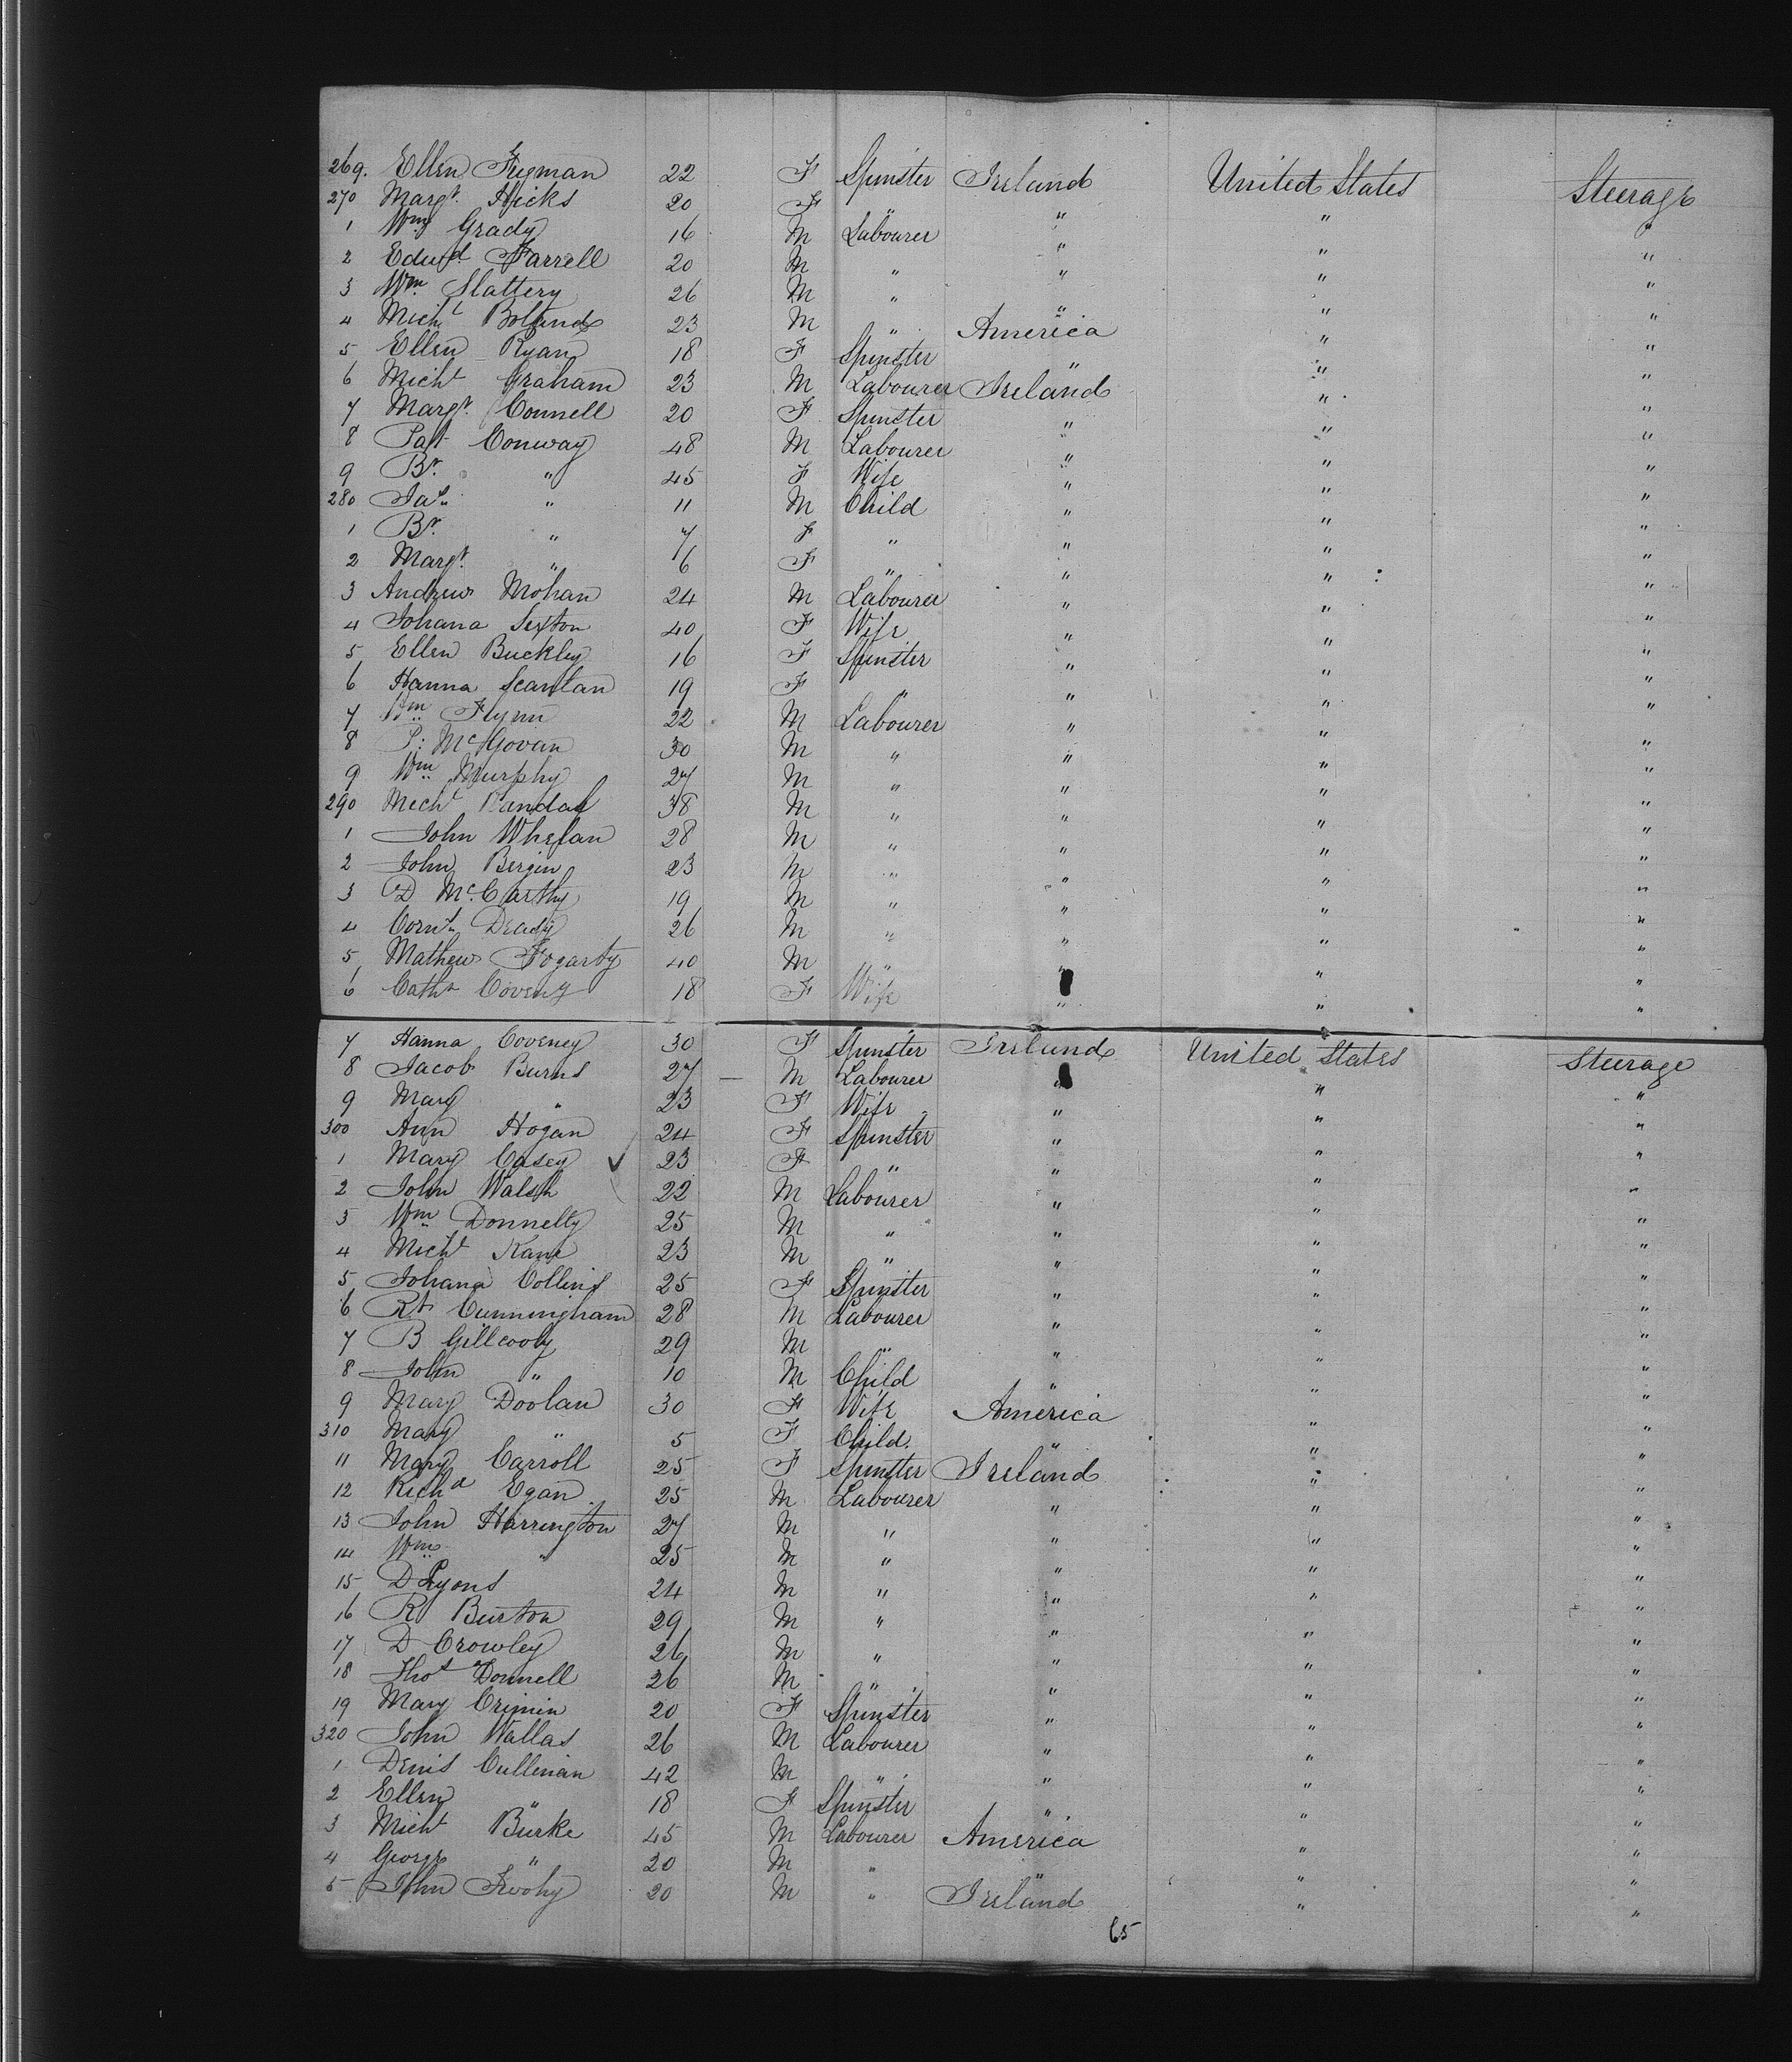 269. Ellen Fugman 22 F Spinster Ireland United States Steerage
270 Margt. Hicks 20 F " " " "
1 Wm Grady 16 M Labourer " " "
2 Edwd Farrell 20 M " " " "
3 Wm Slattery 26 M " " " "
4 Michl Boland 23 M " America " "
5 Ellen Ryan 18 F Spinster " " "
6 Michl Graham 23 M Labourer Ireland " "
7 Margt. Connell 20 F Spinster " " "
8 Pat Conway 48 M Labourer " " "
9 Br. " 45 F Wife " " "
280 Jas. " 11 M Child " " "
1 Br. " 7 F " " " "
2 Margt. " 6 F " " " "
3 Andrew Mohan 24 M Labourer " " "
4 Johana Sexton 40 F Wife " " "
5 Ellen Buckley 16 F Spinster " " "
6 Hanna Scanlan 19 F " " " "
7 Wm Flynn 22 M Labourer " " "
8 P: McGovan 30 M " " " "
9 Wm Murphy 27 M " " " "
290 Michl Randal 38 M " " " "
1 John Whelan 28 M " " " "
2 John Bergin 23 M " " " "
3 D McCarthy 19 M " " " "
4 Corns. Deady 26 M " " " "
5 Mathew Fogarty 40 M " " " "
6 Cathr Coveny 18 F Wife " " "
7 Hanna Coveney 30 F Spinster Ireland United States Steerage
8 Jacob Burns 27 — M Labourer " " "
9 Mary " 23 F Wife " " "
300 Ann Hogan 24 F Spinster " " "
1 Mary Casey ✓ 23 F " " " "
2 John Walsh 22 M Labourer " " "
3 Wm Donnelly 25 M " " " "
4 Michl Kane 23 M " " " "
5 Johana Collins 25 F Spinster " " "
6 Rt Cunningham 28 M Labourer " " "
7 B Gillcooly 29 M " " " "
8 John " 10 M Child " " "
9 Mary Doolan 30 F Wife America " "
310 Mary " 5 F Child. " " "
11 Mary Carroll 25 F Spinster Ireland " "
12 Richd Egan 25 M Labourer " " "
13 John Harrington 27 M " " " "
14 Wm " 25 M " " " "
15 D Lyons 24 M " " " "
16 R Burton 29 M " " " "
17 D Crowley 26 M " " " "
18 Thos Donnell 26 M " " " "
19 Mary Crimin 20 F Spinster " " "
320 John Wallas 26 M Labourer " " "
1 Denis Cullinan 42 M " " " "
2 Ellen " 18 F Spinster " " "
3 Michl Burke 45 M Labourer America " "
4 George " 20 M " " " "
5 John Twohy 20 M " Ireland " "
65